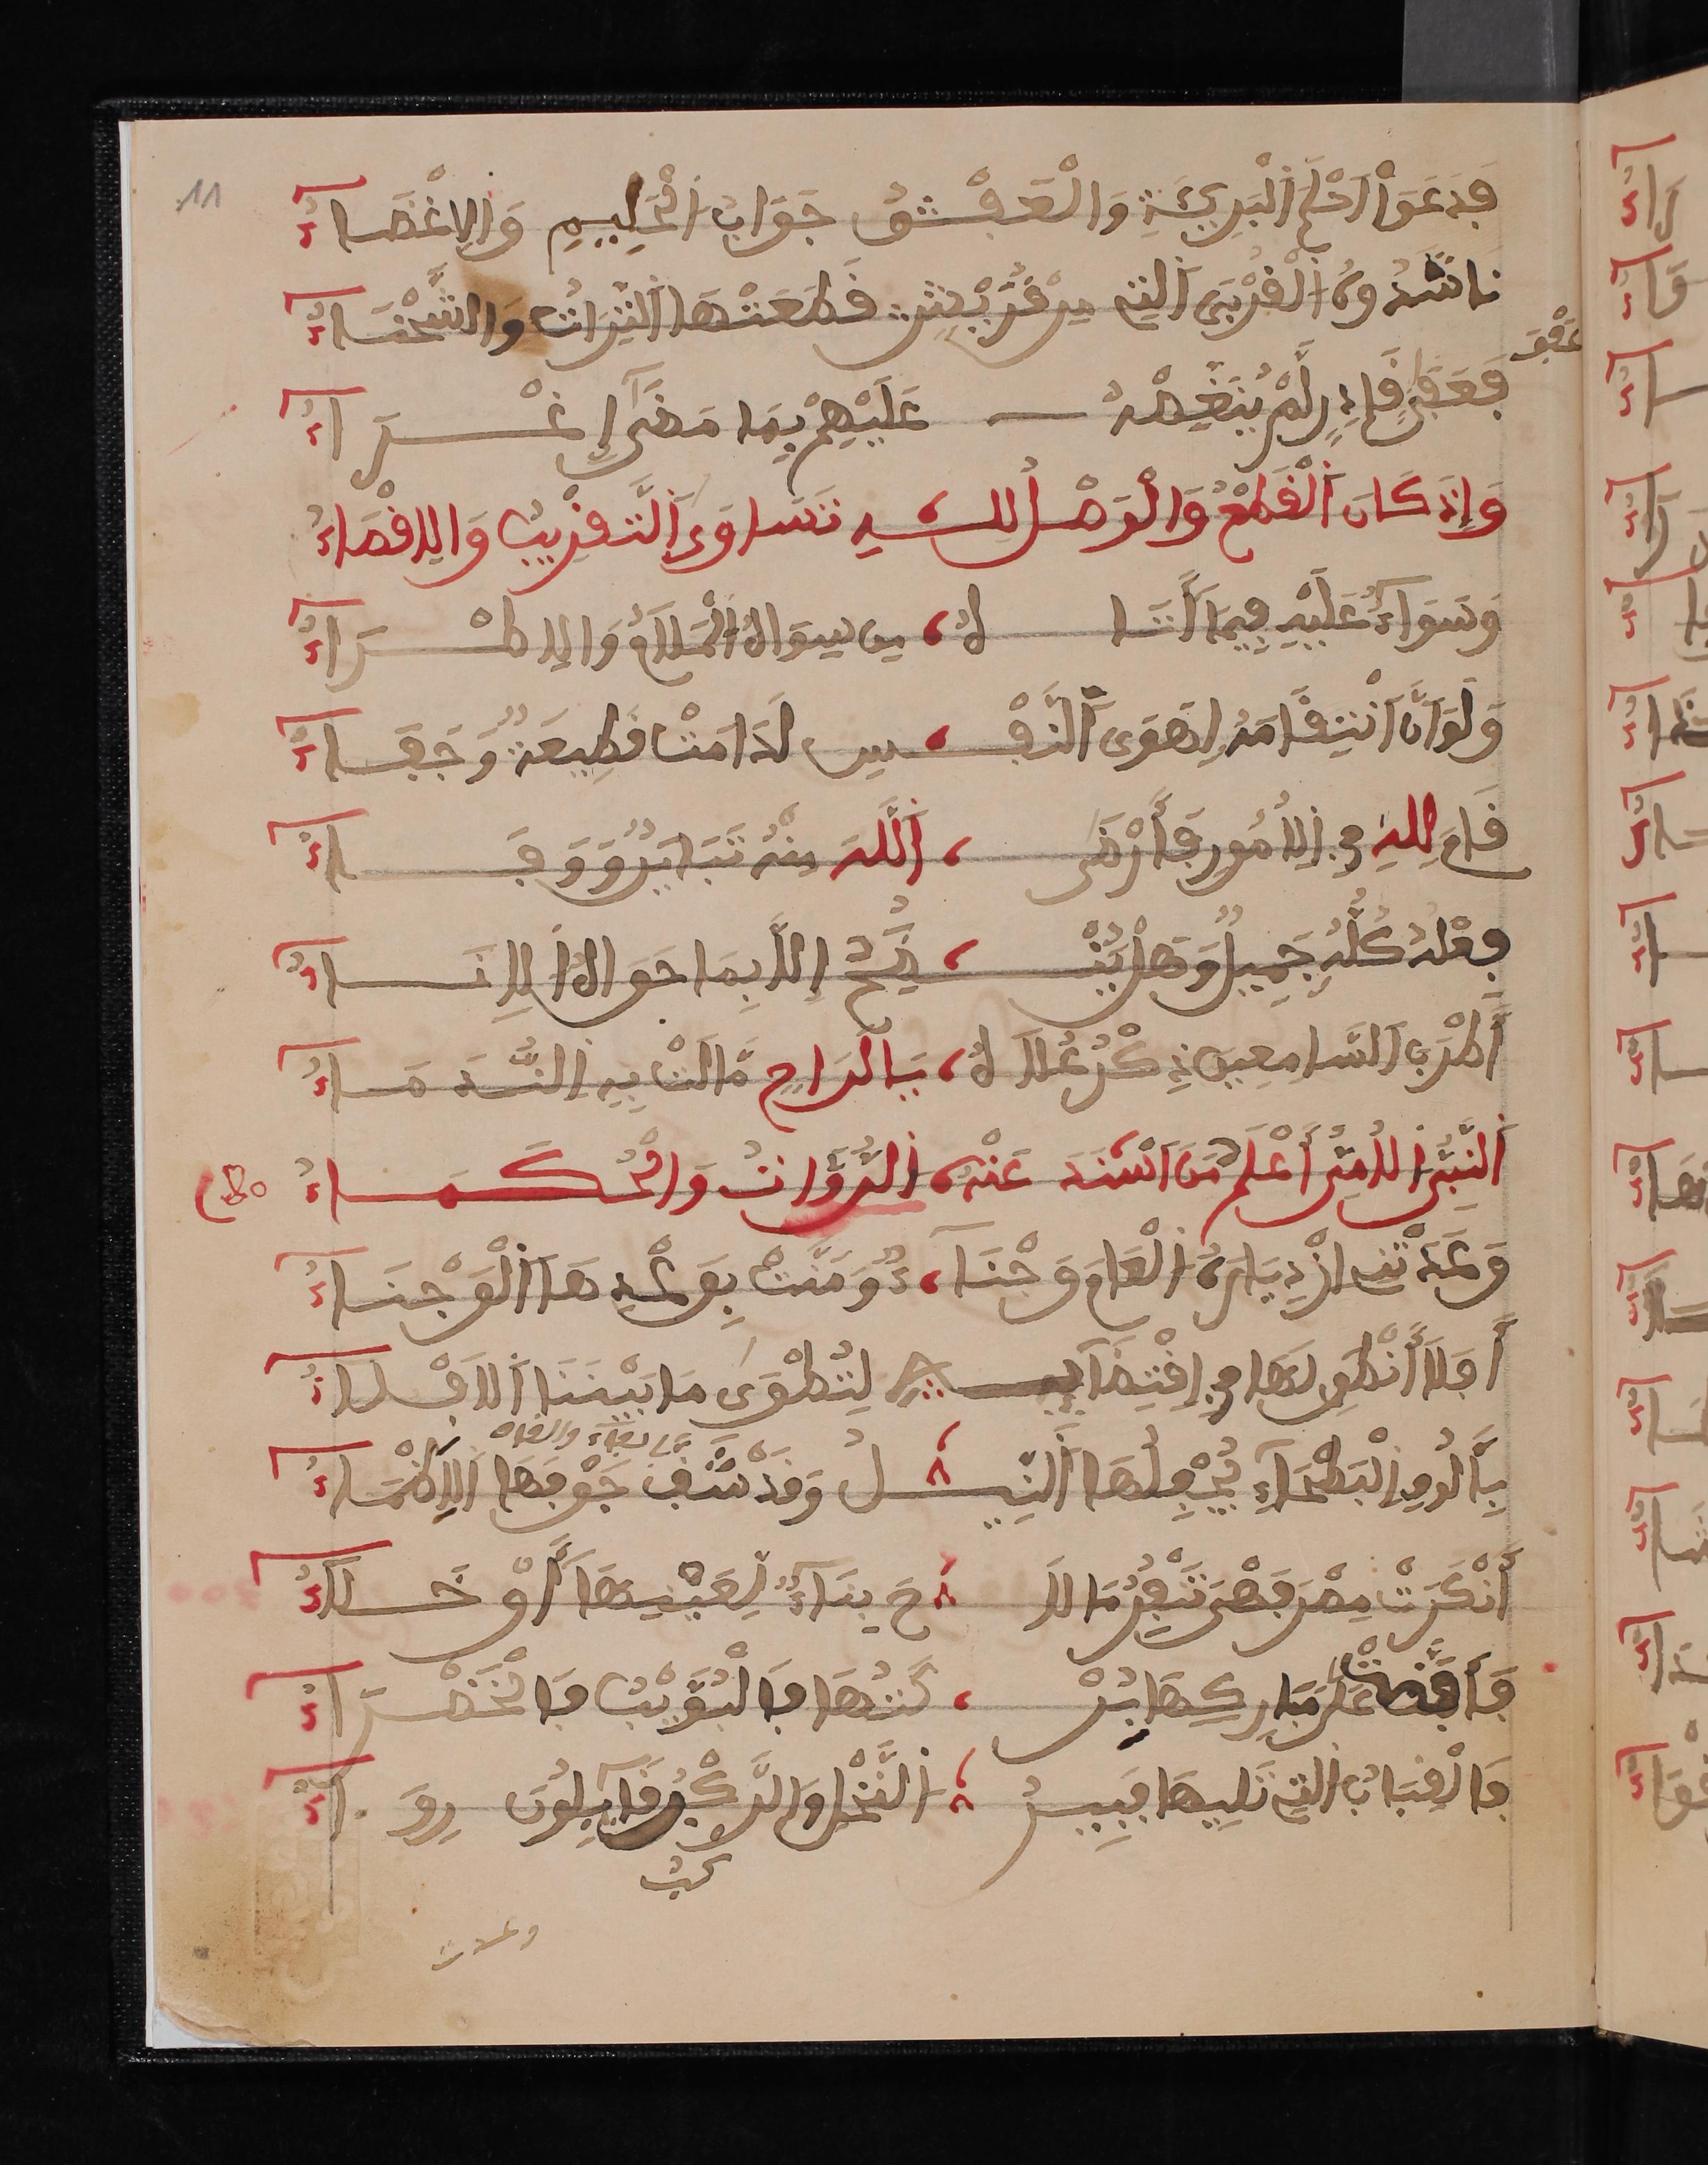 11
فدعوا احلم البريئة والعفو جواب الحليم والاغضاء
ناشدوه القربى التي من قريش قطعتها الترات والشحناء
عفو
فعفا قادر لم ينغصه عليهم بما مضى إغراء
وإذا كان القطع والوصل لله تساوى التقريب والاقصاء
وسواء عليه فيما أتاه من سواه الملام والاطراء
ولو ان انتقامه لهوى النفس لدامت قطيعة وجفاء
قام لله في الامور فأرضى الله منه تباين ووفاء
فعله كله جميل وهل ينضح إلا بما حواه الاناء
أطرب السامعين ذكر علاه يالراح مالت به الندماء
النبي الامي أعلم من اسند عنه الرواة والحكماء
وعدتني ازدياره العام وجناء ومنت بوعدها الوجناء
أفلا أنطوي لها في اقتضائيه لتطوى ما بيننا الافلاء
بألوف البطحاء يجفلها النيل وقد شف جوفها الاظماء
أنكرت مصر فهي تنفر ما لاح بناء لعينها أو خلاء
فأفضت على مباركها بركتها فالبويب فالخضراء
فالقباب التي تليها فبئر النخل والركب قائلون رواء
ركب
وغدت